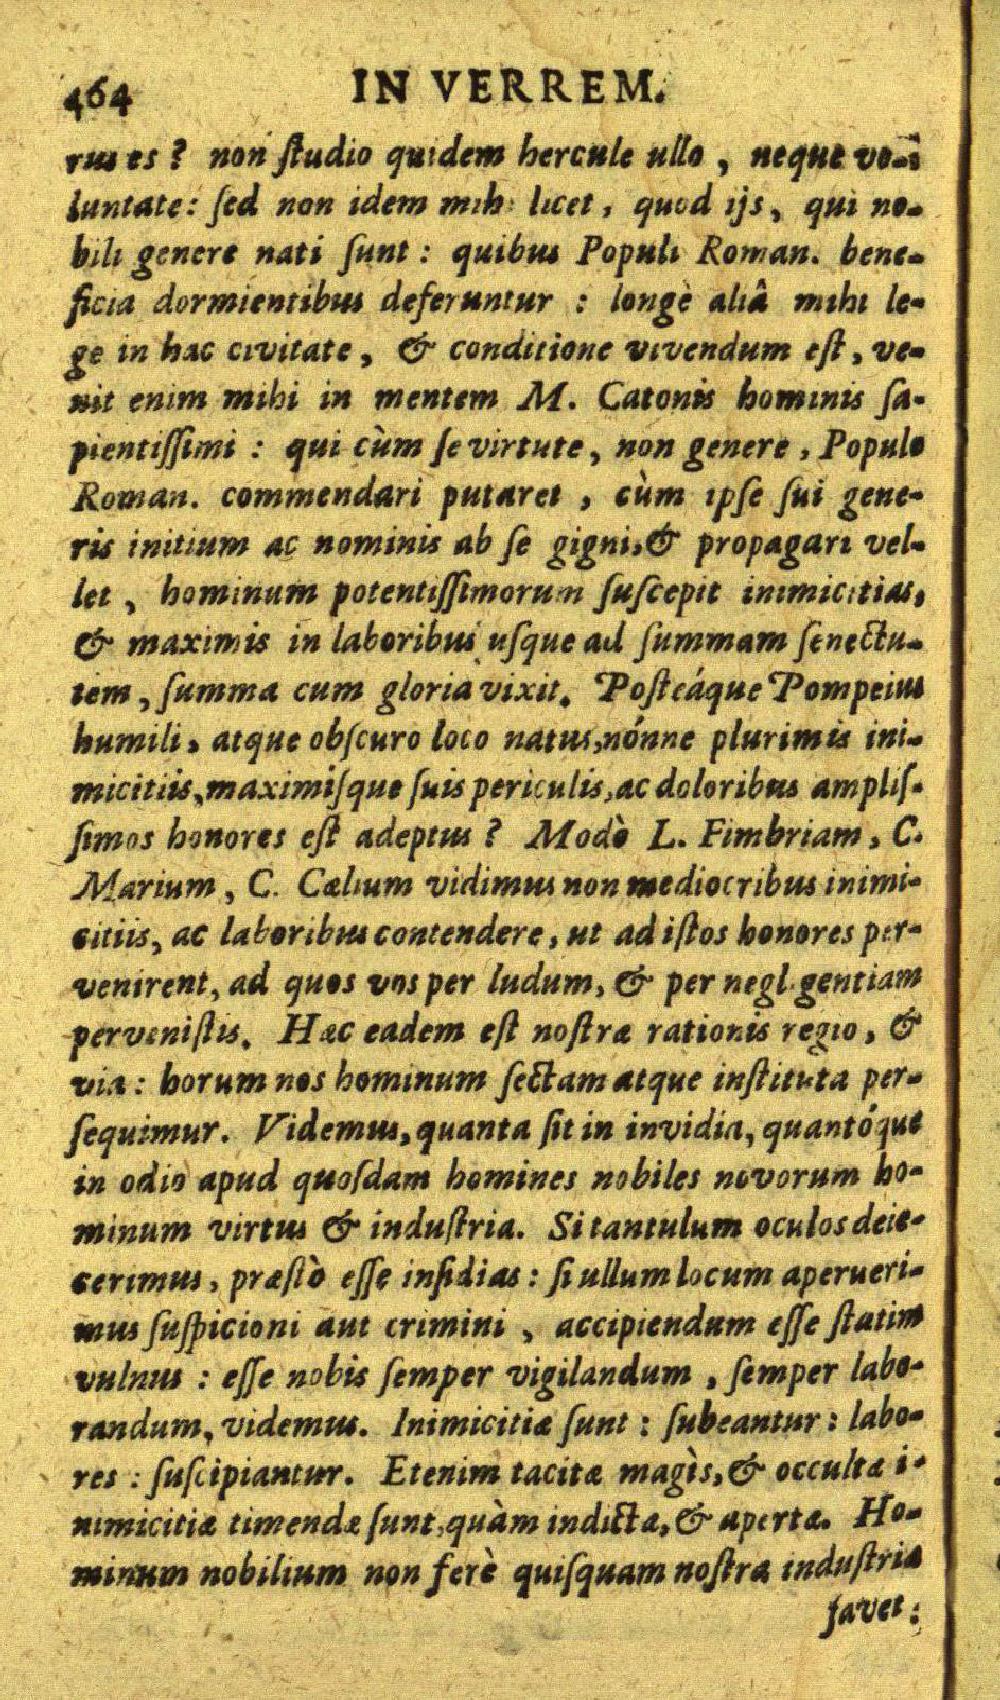 464 IN VERREM.
rus es ? non studio quidem hercule ullo , neque vo-
luntate: sed non idem mihi licet, quod ijs, qui no-
bili genere nati sunt : quibus Populi Roman. bene-
ficia dormientibus deferuntur : longè aliâ mihi le-
ge in hac civitate, & conditione vivendum est, ve-
nit enim mihi in mentem M. Catonis hominis sa-
pientissimi : qui cùm se virtute, non genere, Populo
Roman. commendari putaret , cùm ipse sui gene-
ris initium ac nominis ab se gigni,& propagari vel-
let , hominum potentissimorum suscepit inimicitias,
& maximis in laboribus usque ad summam senectu-
tem, summa cum gloria vixit. Posteáque Pompeius
humili, atque obscuro loco natus,nónne plurimis ini-
micitiis,maximisque suis periculis,ac doloribus amplis-
simos honores est adeptus ? Modò L. Fimbriam, C.
Marium, C. Cælium vidimus non mediocribus inimi-
citiis, ac laboribus contendere, ut ad istos honores per-
venirent, ad quos vos per ludum, & per negligentiam
pervenistis. Hæc eadem est nostræ rationis regio, &
via: horum nos hominum sectam atque instituta per-
sequimur. Videmus, quanta sit in invidia, quantóque
in odio apud quosdam homines nobiles novorum ho-
minum virtus & industria. Si tantulum oculos deie-
cerimus, præstò esse insidias : si ullum locum aperueri-
mus suspicioni aut crimini , accipiendum esse statim
vulnus : esse nobis semper vigilandum , semper labo-
randum, videmus. Inimicitiæ sunt : subeantur : labo-
res : suscipiantur. Etenim tacitæ magìs,& occultæ i-
nimicitiæ timendæ sunt,quàm indictæ,& apertæ. Ho-
minum nobilium non ferè quisquam nostra industria
favet: